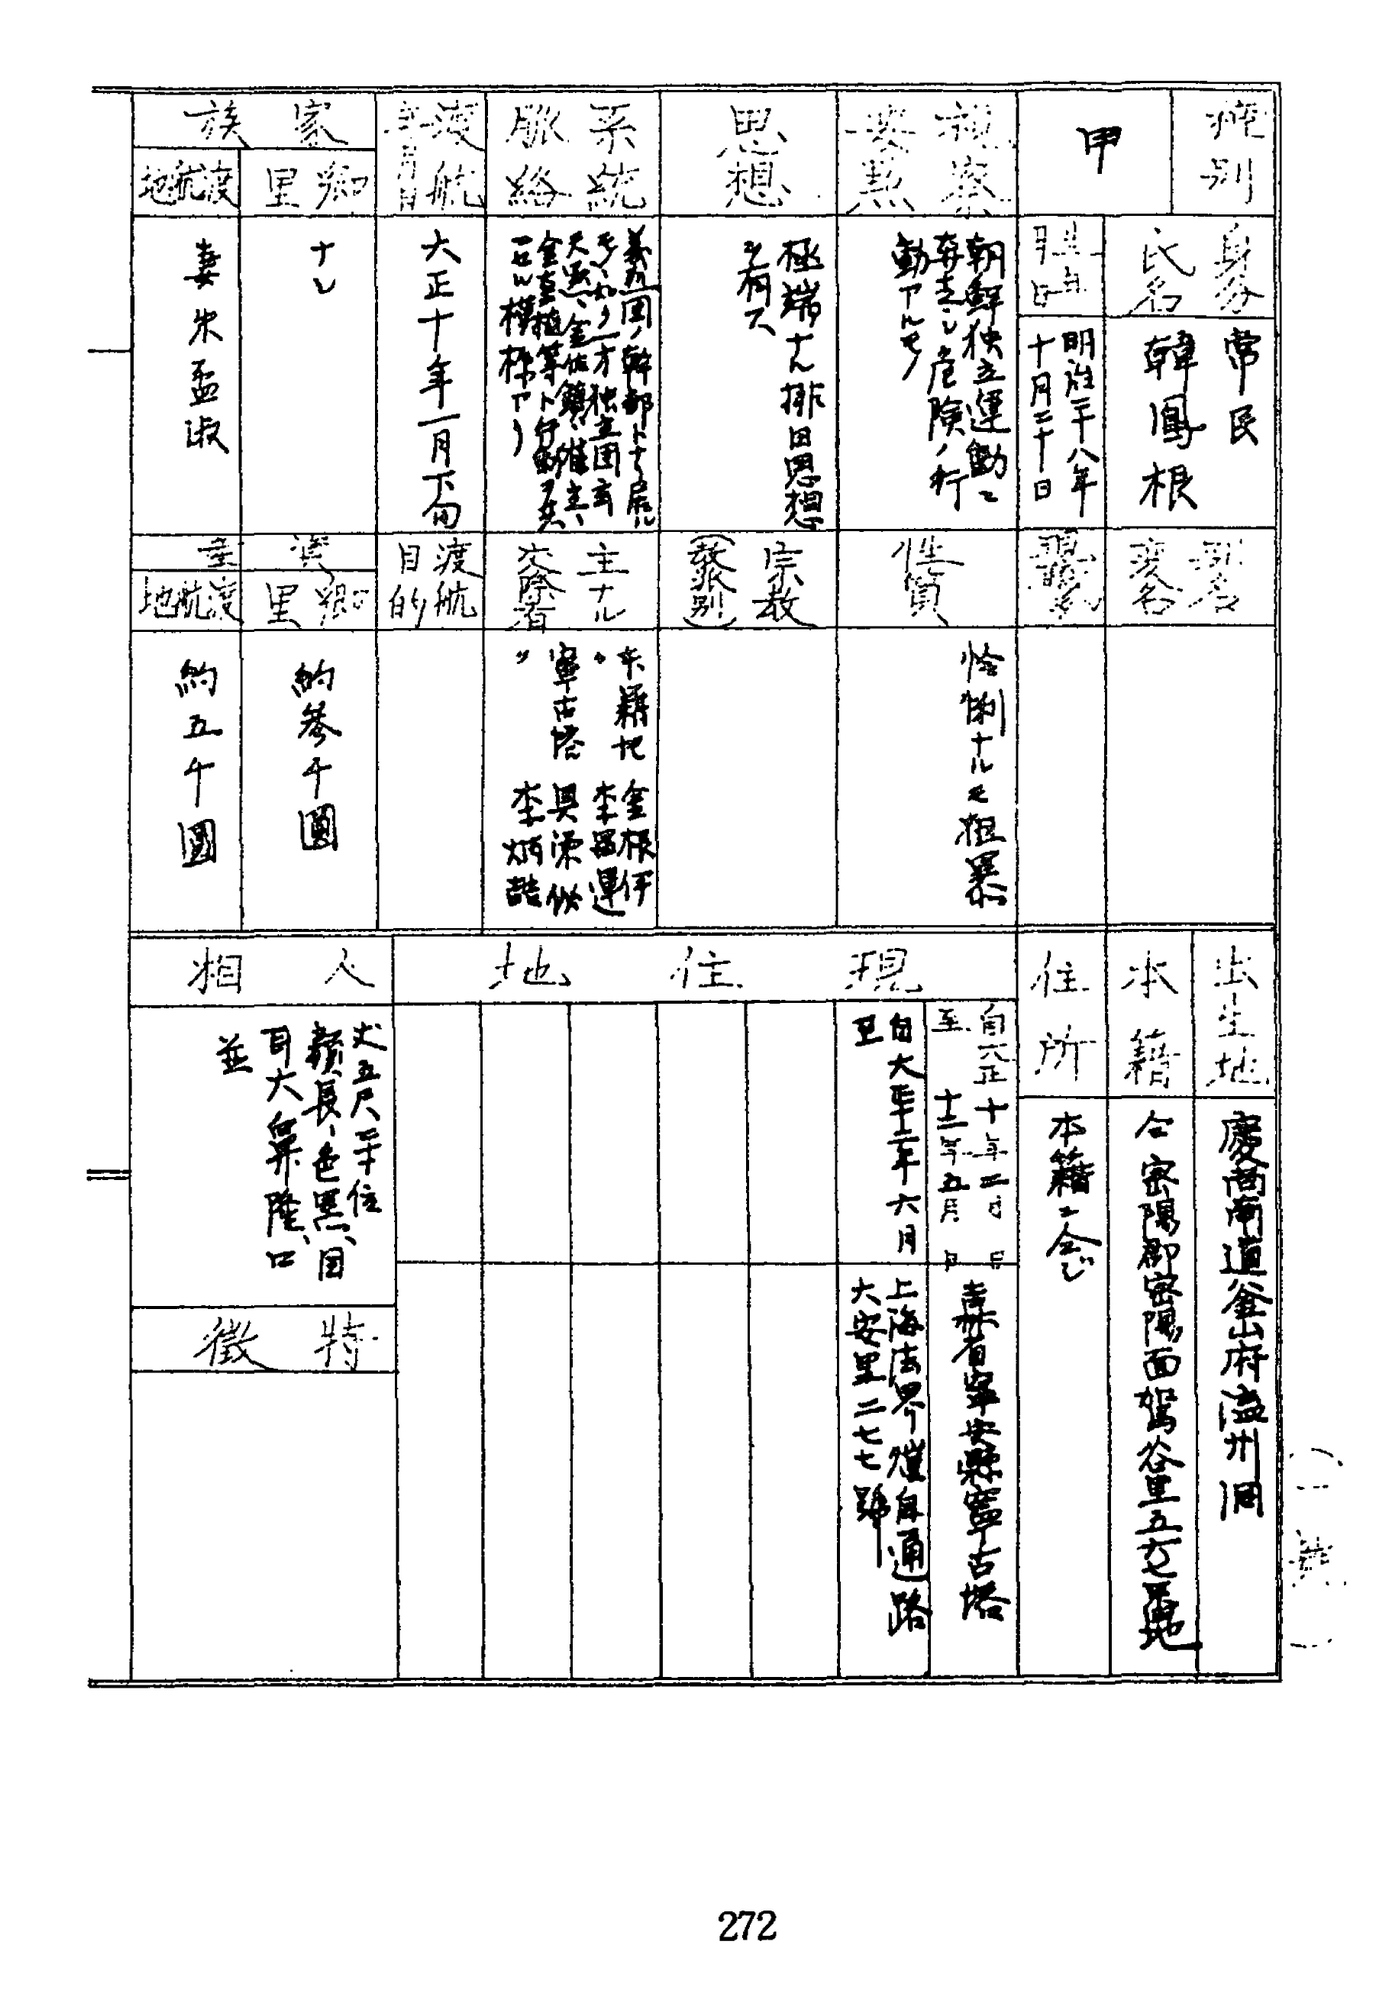 種別
甲
身分
常民
氏名
韓鳳根
生年
月日
明治二十八年
十月二十日
別名
変名
視察
要点
朝鮮独立運動ニ
奔走シ危険ノ行
動アルモノ
性質
怜悧ナルモ粗暴
思想
極端ナル排日思想
ヲ有ス
宗教
(教派別)
系統
脈絡
義烈団ノ幹部トナリ居ル
金佐鎮
金元植等ト行動ヲ共
ニセル模様アリ
主ナル
交際者
本籍地 金根伊
〃 李昌運
寧古塔
〃 李炳喆
渡航
年月日
大正十年一月下旬
渡航
目的
家族
郷里
ナシ
渡航地
妻 朱孟淑
資産
郷里
約参千圓
渡航地
約五千圓
出生地
慶尚南道釜山府瀛州洞
本籍
仝密陽郡密陽面駕谷里五六七番地
住所
本籍ニ仝ジ
現住地
自大正十年二月 日
至 十二年五月 日
吉林省寧安縣寧古塔
自大正十二年六月
至
上海法界 自通路
大安里二七七號
人相
丈五尺三寸位
顔長、色黒、目
耳大鼻隆、口
並
特徴
(一號)
272